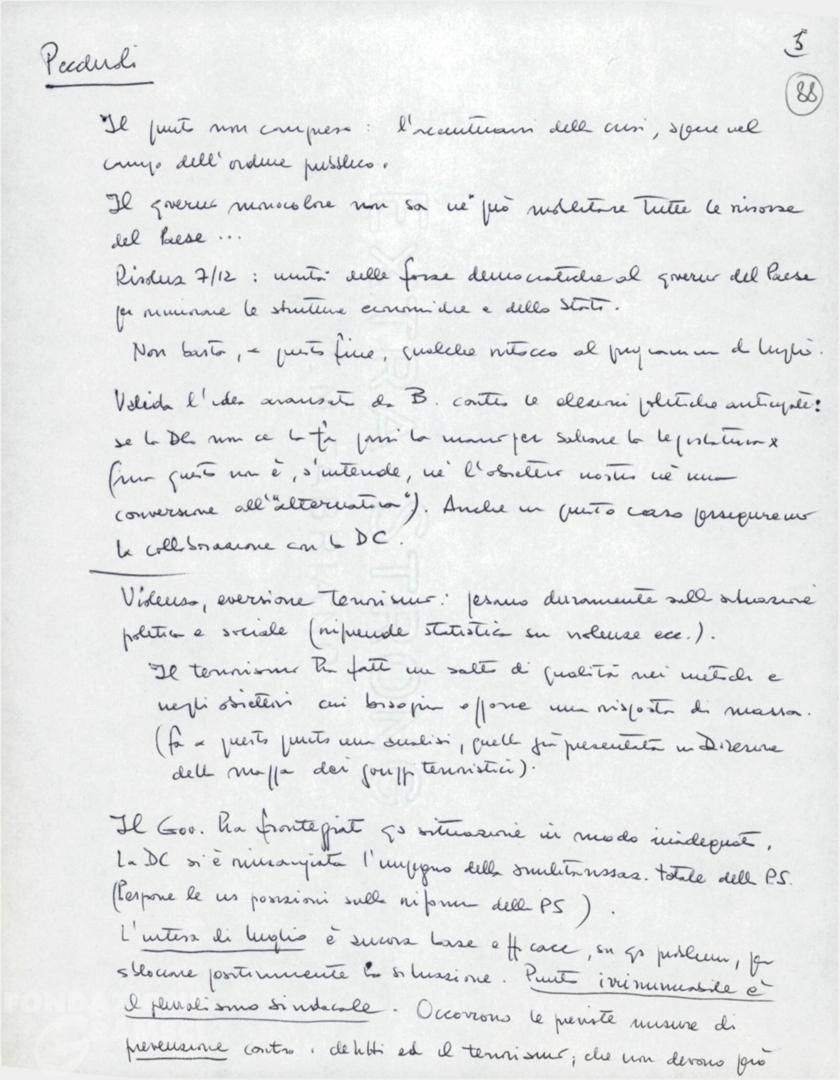 5
Pecchioli
88
Il punto non compreso : l'accentuarsi della crisi, specie nel
campo dell'ordine pubblico.
Il governo monocolore non sa né può mobilitare tutte le risorse
del Paese ...
Risoluz 7/12 : unità delle forze democratiche al governo del Paese
per rinnovare le strutture economiche e dello Stato.
Non basta, a questo fine, qualche ritocco al programma di luglio.
Valida l'idea avanzata da B. contro le elezioni politiche anticipate:
se la DC non ce la fa passi la mano per salvare la legislatura
(ma questo non è, s'intende, né l'obiettivo nostro né una
conversione all'"alternativa"). Anche in questo caso perseguiremo
la collaborazione con la DC.
Violenza, eversione terrorismo: pesano duramente sulla situazione
politica e sociale (riprende statistica su violenze ecc.).
Il terrorismo ha fatto un salto di qualità nei metodi e
negli obiettivi cui bisogna opporre una risposta di massa.
(fa a questo punto una analisi, quella già presentata in Direzione
della mappa dei gruppi terroristici).
Il Gov. ha fronteggiato qs situazione in modo inadeguato,
La DC si è rimangiata l'impegno della smilitarizzaz. totale della P.S.
(Espone le ns posizioni sulla riforma della PS ).
L'intesa di luglio è ancora base efficace, su qs problema, per
sbloccare positivamente la situazione. Punto irrinunciabile è
il pluralismo sindacale. Occorrono le previste misure di
prevenzione contro i delitti ed il terrorismo; che non devono però